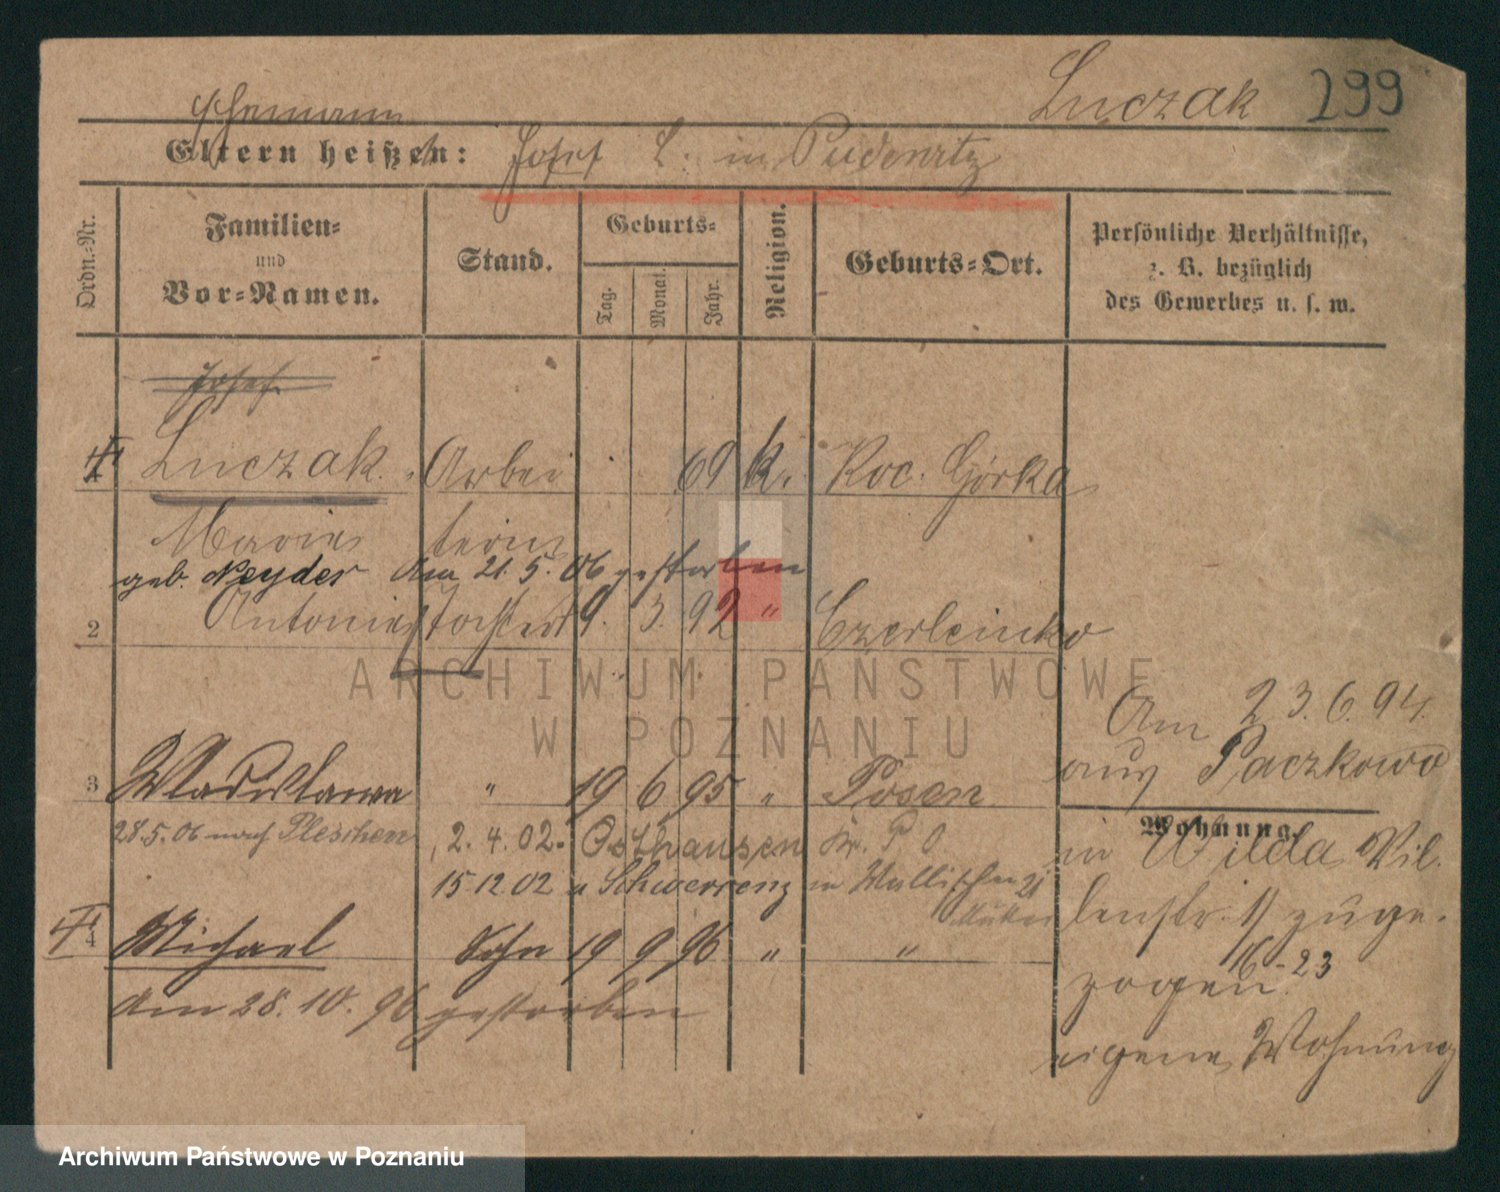 Luczak 299
Ehemann
Eltern heißen: Josef L. in Pudewitz
Ordn.-Nr.
Familien-
und
Vor-Namen.
Stand.
Geburts-
Tag.
Monat.
Jahr.
Religion.
Geburts-Ort.
Persönliche Verhältnisse,
z. B. bezüglich
des Gewerbes u. s. w.
Josef
Luczak. Arbei 69 k. Koc. Górka
Marie terin
geb. Neyder Am 21. 5. 06 gestorben
2 Antonie Tochter 9. 3. 92 " Czerleinko
ARCHIWUM PAŃSTWOWE
W POZNANIU
Am 23.6.94.
aus Paczkowo
3 Wladislawa " 19 6 95 " Posen
28.5.06 nach Pleschen 2. 4. 02. Osthausen Kr. P. O
15 12 02 Schwersenz in Wallischei 21
Mutter
Wohnung.
in Wilda Vil.
lenstr. zuge-
zogen. 16-23
eigene Wohnung
4 Michael Sohn 19 9 96 " "
am 28. 10. 96 gestorben
Archiwum Państwowe w Poznaniu